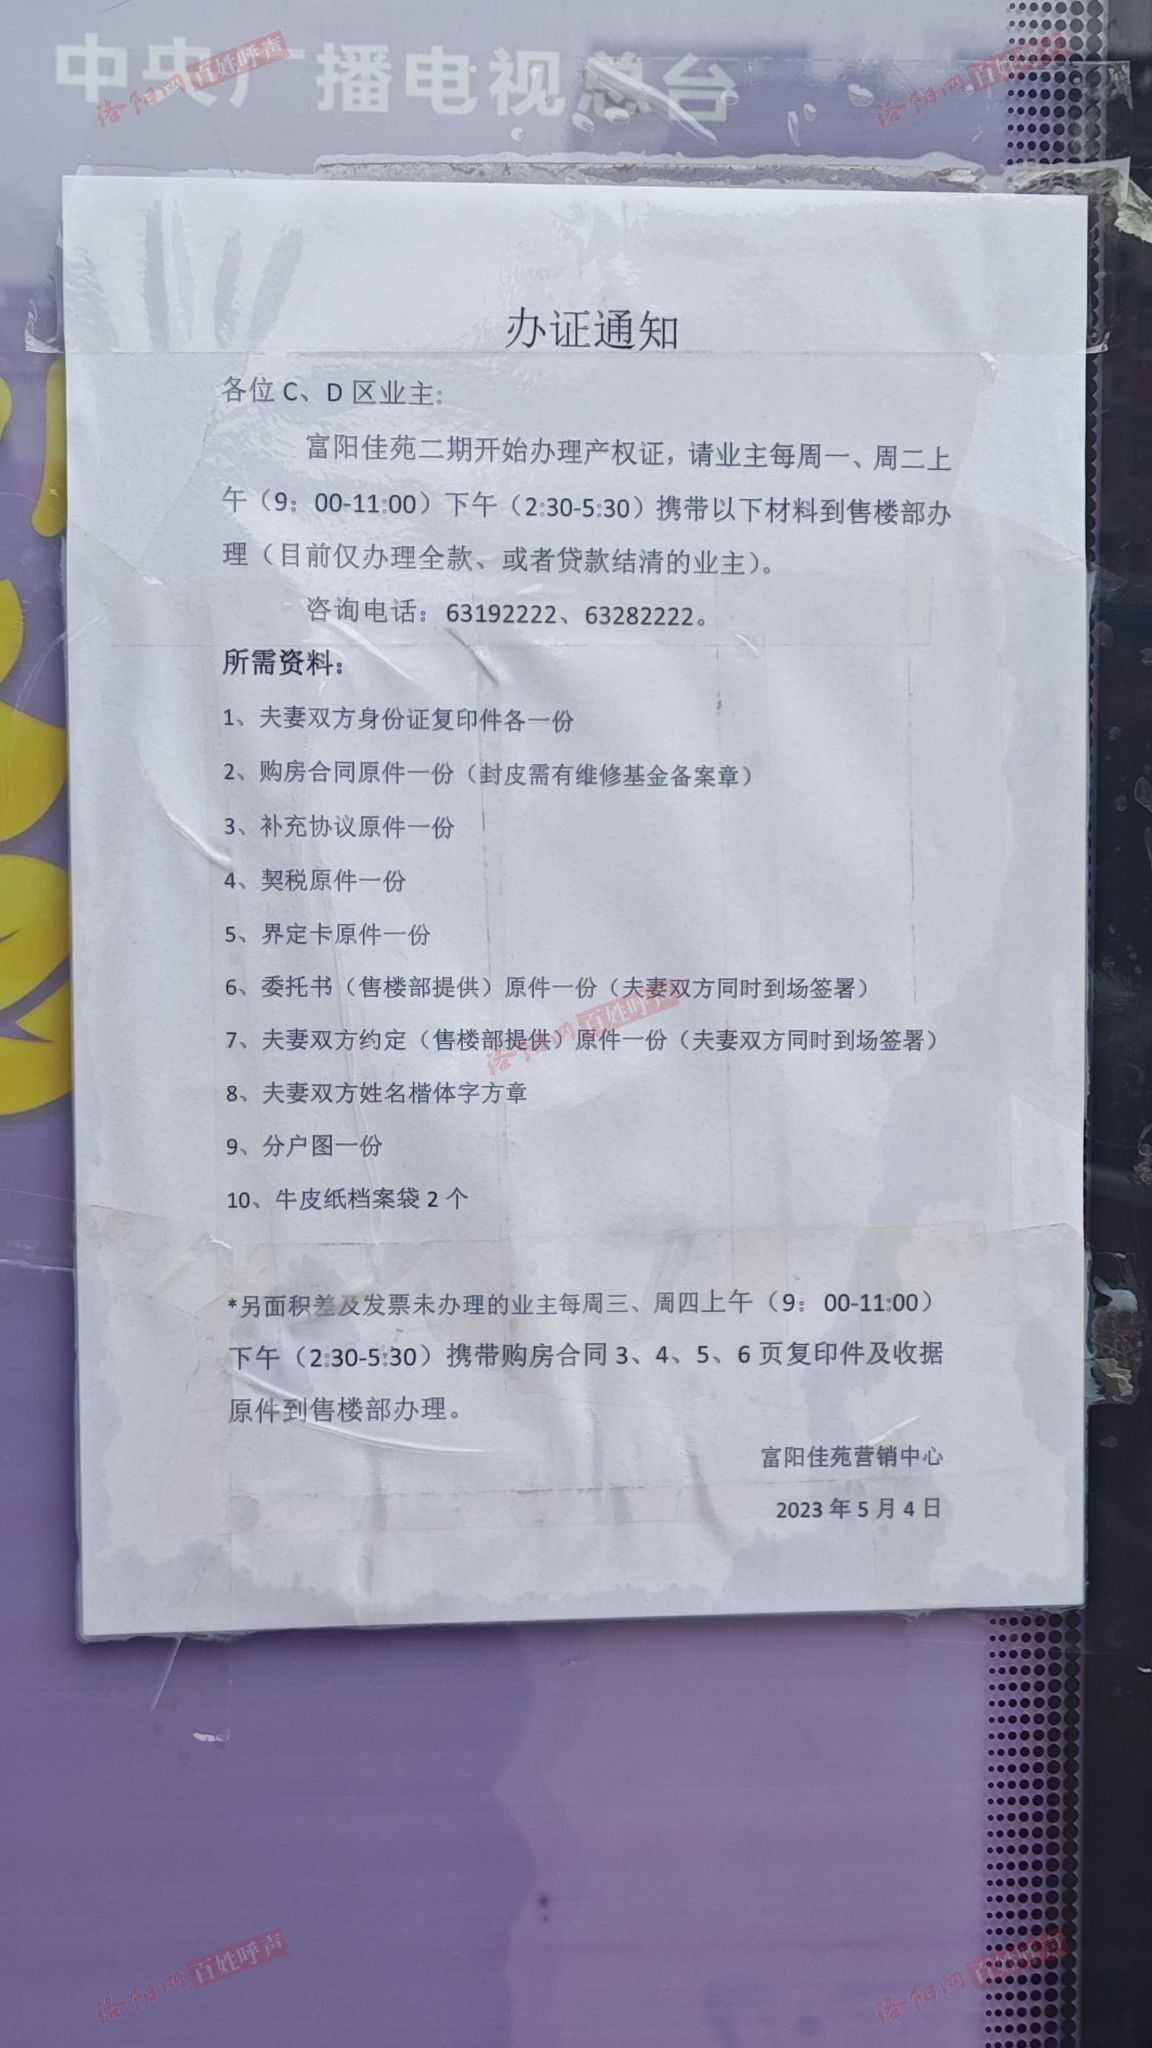 中央广播电视总台
洛阳网 百姓呼声
洛阳网 百姓呼声
办证通知
各位 C、D 区业主:
富阳佳苑二期开始办理产权证，请业主每周一、周二上
午（9：00-11:00）下午（2:30-5:30）携带以下材料到售楼部办
理（目前仅办理全款、或者贷款结清的业主）。
咨询电话：63192222、63282222。
所需资料：
1、夫妻双方身份证复印件各一份
2、购房合同原件一份（封皮需有维修基金备案章）
3、补充协议原件一份
4、契税原件一份
5、界定卡原件一份
6、委托书（售楼部提供）原件一份（夫妻双方同时到场签署）
洛阳网 百姓呼声
7、夫妻双方约定（售楼部提供）原件一份（夫妻双方同时到场签署）
8、夫妻双方姓名楷体字方章
9、分户图一份
10、牛皮纸档案袋 2 个
*另面积差及发票未办理的业主每周三、周四上午（9：00-11:00）
下午（2:30-5:30）携带购房合同 3、4、5、6 页复印件及收据
原件到售楼部办理。
富阳佳苑营销中心
2023 年 5 月 4 日
洛阳网 百姓呼声
洛阳网 百姓呼声